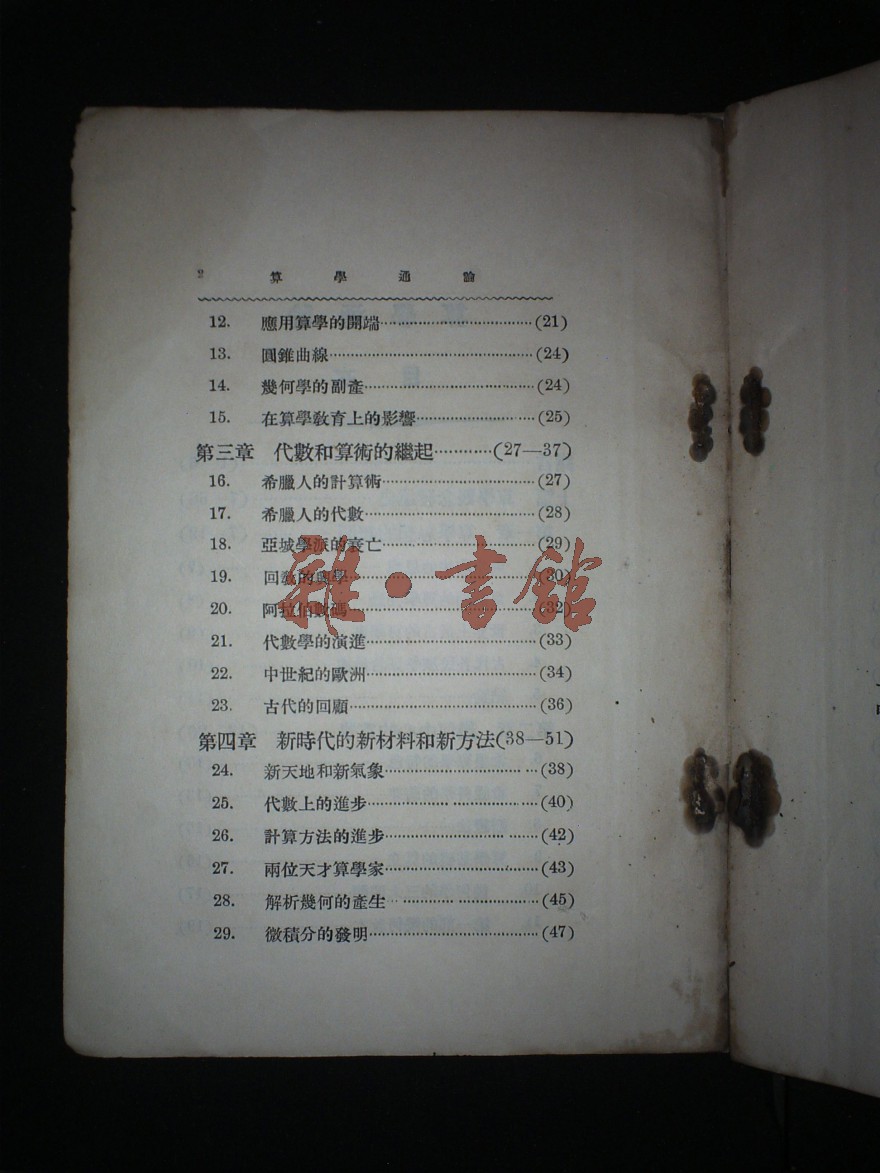 2 算學通論
12. 應用算學的開端……………………(21)
13. 圓錐曲線……………………(24)
14. 幾何學的副產……………………(24)
15. 在算學敎育上的影響……………………(25)
第三章 代數和算術的繼起…………(27—37)
16. 希臘人的計算術……………………(27)
17. 希臘人的代數……………………(28)
18. 亞城學派的衰亡……………………(29)
19. 回敎的興學……………………(30)
20. 阿拉伯數碼……………………(32)
21. 代數學的演進……………………(33)
22. 中世紀的歐洲……………………(34)
23. 古代的回顧……………………(36)
第四章 新時代的新材料和新方法(38—51)
24. 新天地和新氣象……………………(38)
25. 代數上的進步……………………(40)
26. 計算方法的進步……………………(42)
27. 兩位天才算學家……………………(43)
28. 解析幾何的產生……………………(45)
29. 微積分的發明……………………(47)
雜·書館